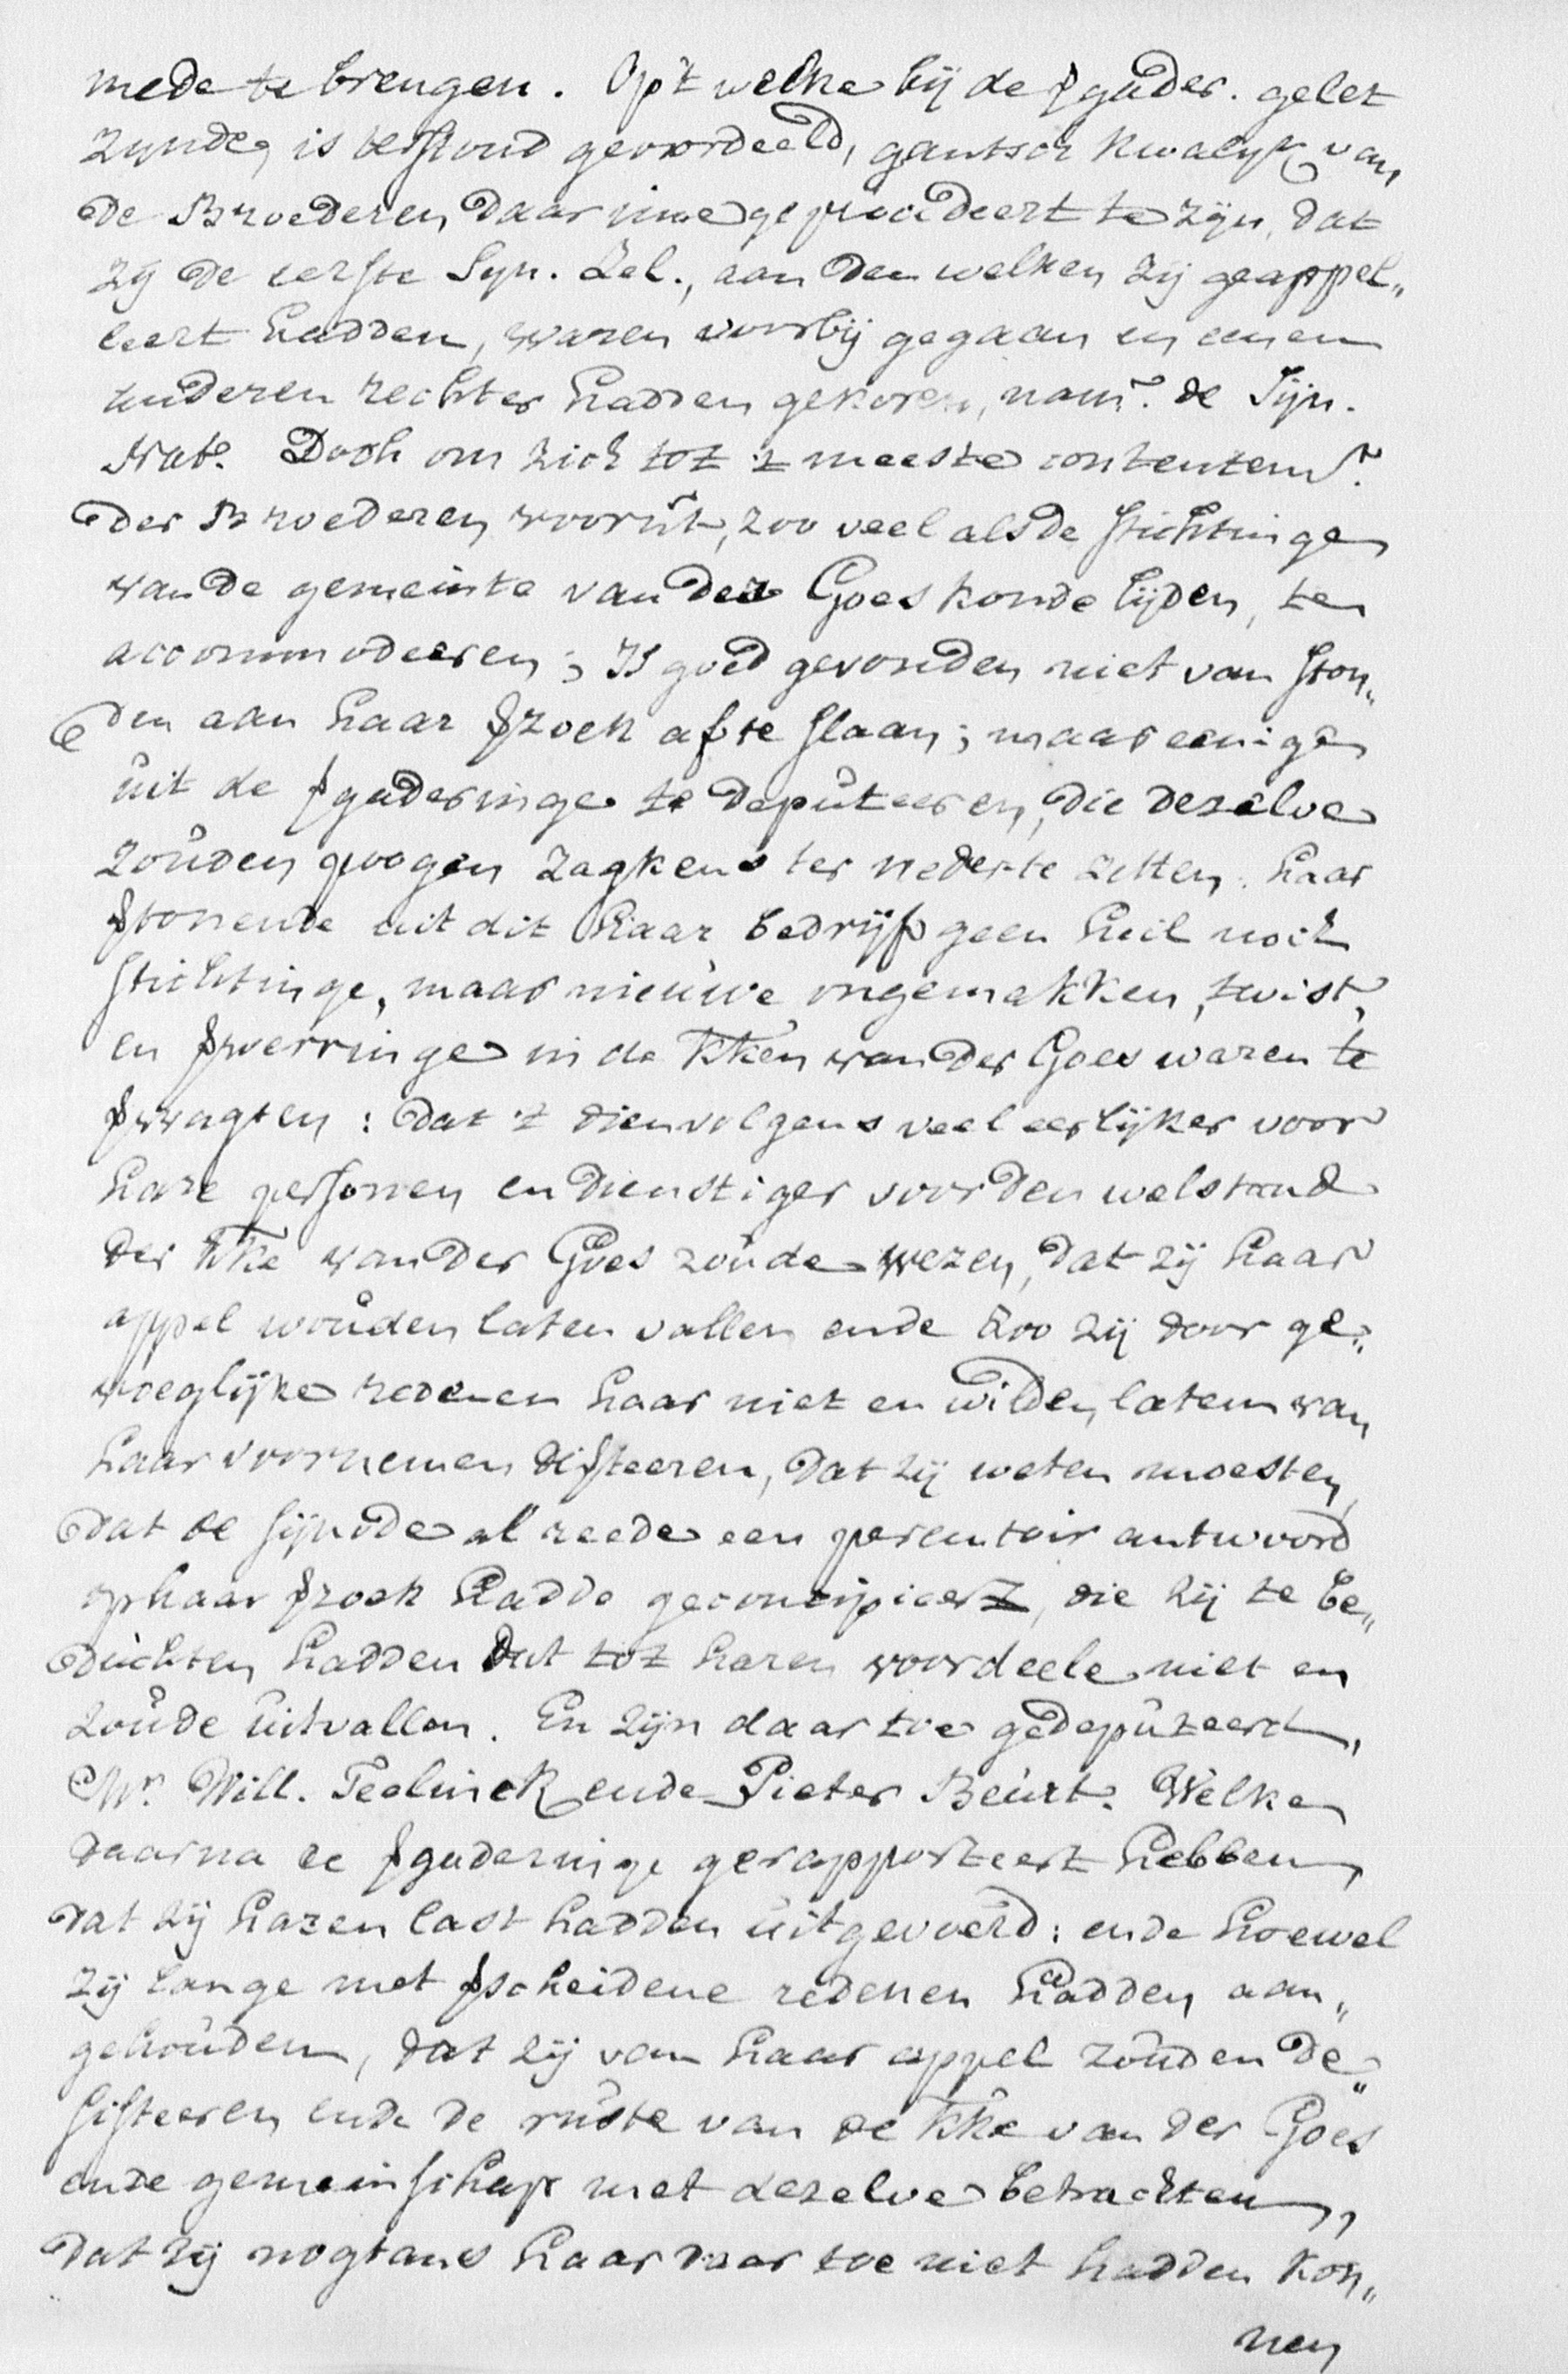 mede te brengen. Op 't welke bij de ꝟgader. gelet
zynde, is terstond geoordeeld, gantsch kwalyk van
de Broederen daar inne geprocedeert te zijn, dat
zij de eerste Syn. Zel., aan den welken zij geappel„
leert hadden, waren voorbij gegaan en eenen
anderen rechter hadden gekoren, nam. de Sijn.
Nat. Doch om zich tot 't meeste contentem.t
der Broederen vooruit, zoo veel als de stichtinge
van de gemeinte van der Goes konde lijden, te
accommodeeren; Is goed gevonden niet van ston„
den aan haar ꝟzoek af te slaan; maar eenige
uit de ꝟgaderinge te deputeeren, die dezelve
zouden poogen zagkens ter neder te zetten. haar
ꝟtonende uit dit haar bedrijf geen heil noch
stichtinge, maar nieuwe ongemakken, twist,
en ꝟwerringe in de kken van der Goes waren te
ꝟwagten: dat 't dienvolgens veel eerlijker voor
hare persoonen en dienstiger voor den welstand
der kke van der Goes zoude wezen, dat zij haar
appel wouden laten vallen ende zoo zij door ge„
voeglijke redenen haar niet en wilden laten van
haar voornemen desisteeren, dat zij weten moesten,
dat de sijnode al reede een peremtoir antwoord
op haar ꝟzoek hadde geconcipieert, die zij te be„
duchten hadden dat tot haren voordeele niet en
zoude uitvallen. En zijn daar toe gedeputeerd,
Mr. Will. Teelinck ende Pieter Beurt. Welke
daarna de ꝟgaderinge gerapporteert hebben,
dat zij haren last hadden uitgevoerd: ende hoewel
zij lange met ꝟscheidene redenen hadden aan„
gehouden, dat zij van haar appel zouden de„
sisteeren ende de ruste van de kke van der Goes
ende gemeinschap met dezelve betrachten,
dat zij nogtans haar daar toe niet hadden kon„
nen